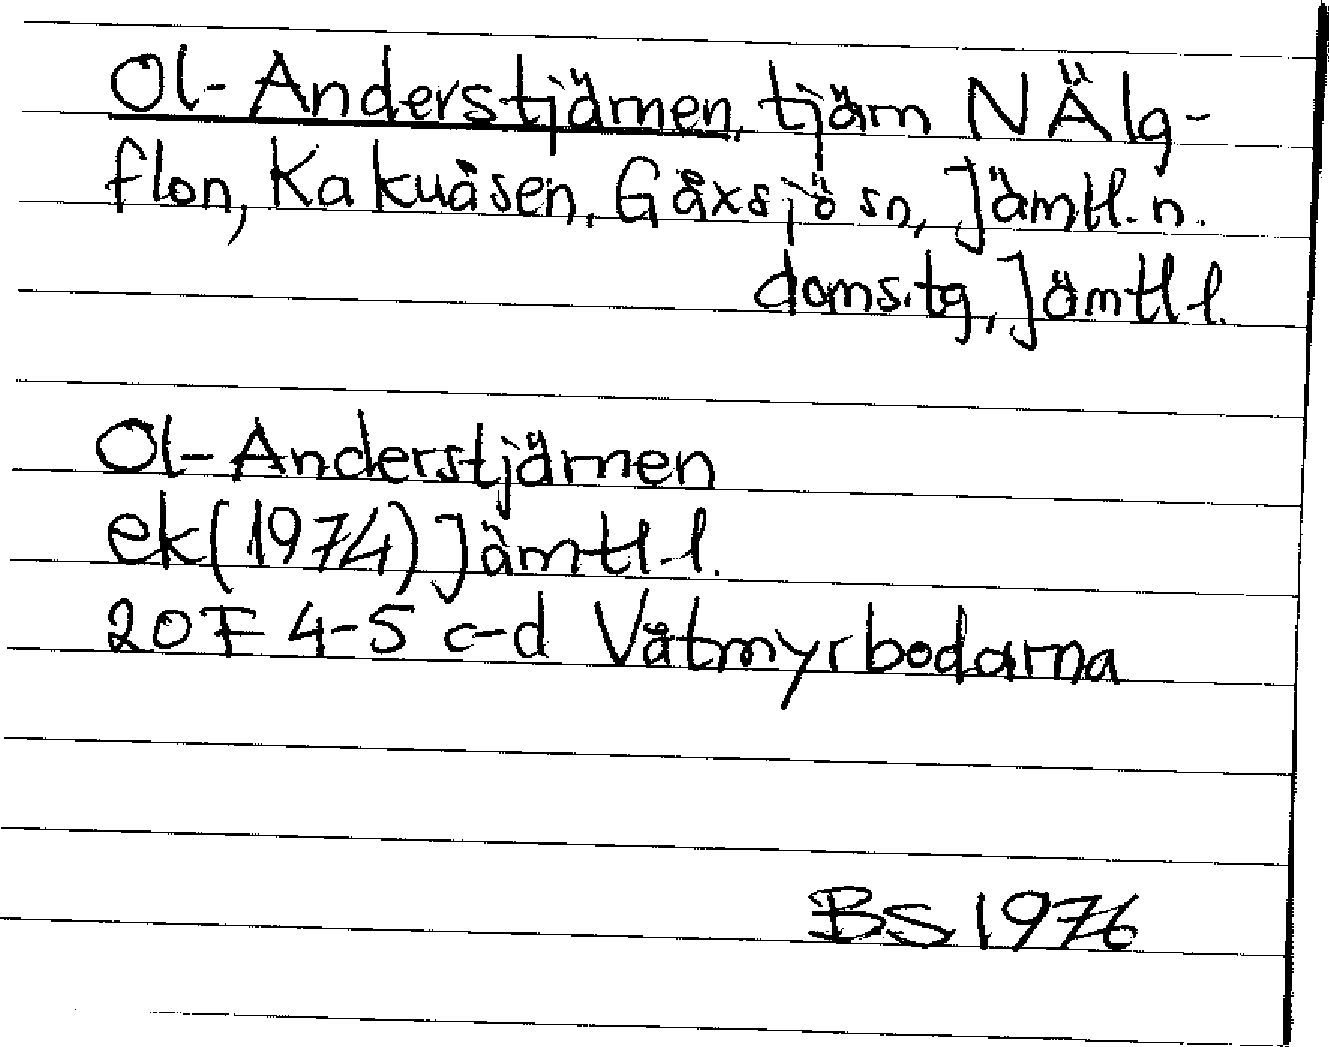 Ol-Anderstjärnen, tjärn N Älg-
flon, Kakuåsen, Gåxsjö sn, Jämtl. n.
doms.tg, Jämtl l.
Ol-Anderstjärnen
ek(1974) Jämtl l.
20F 4-5 c-d Våtmyrbodarna
BS 1976